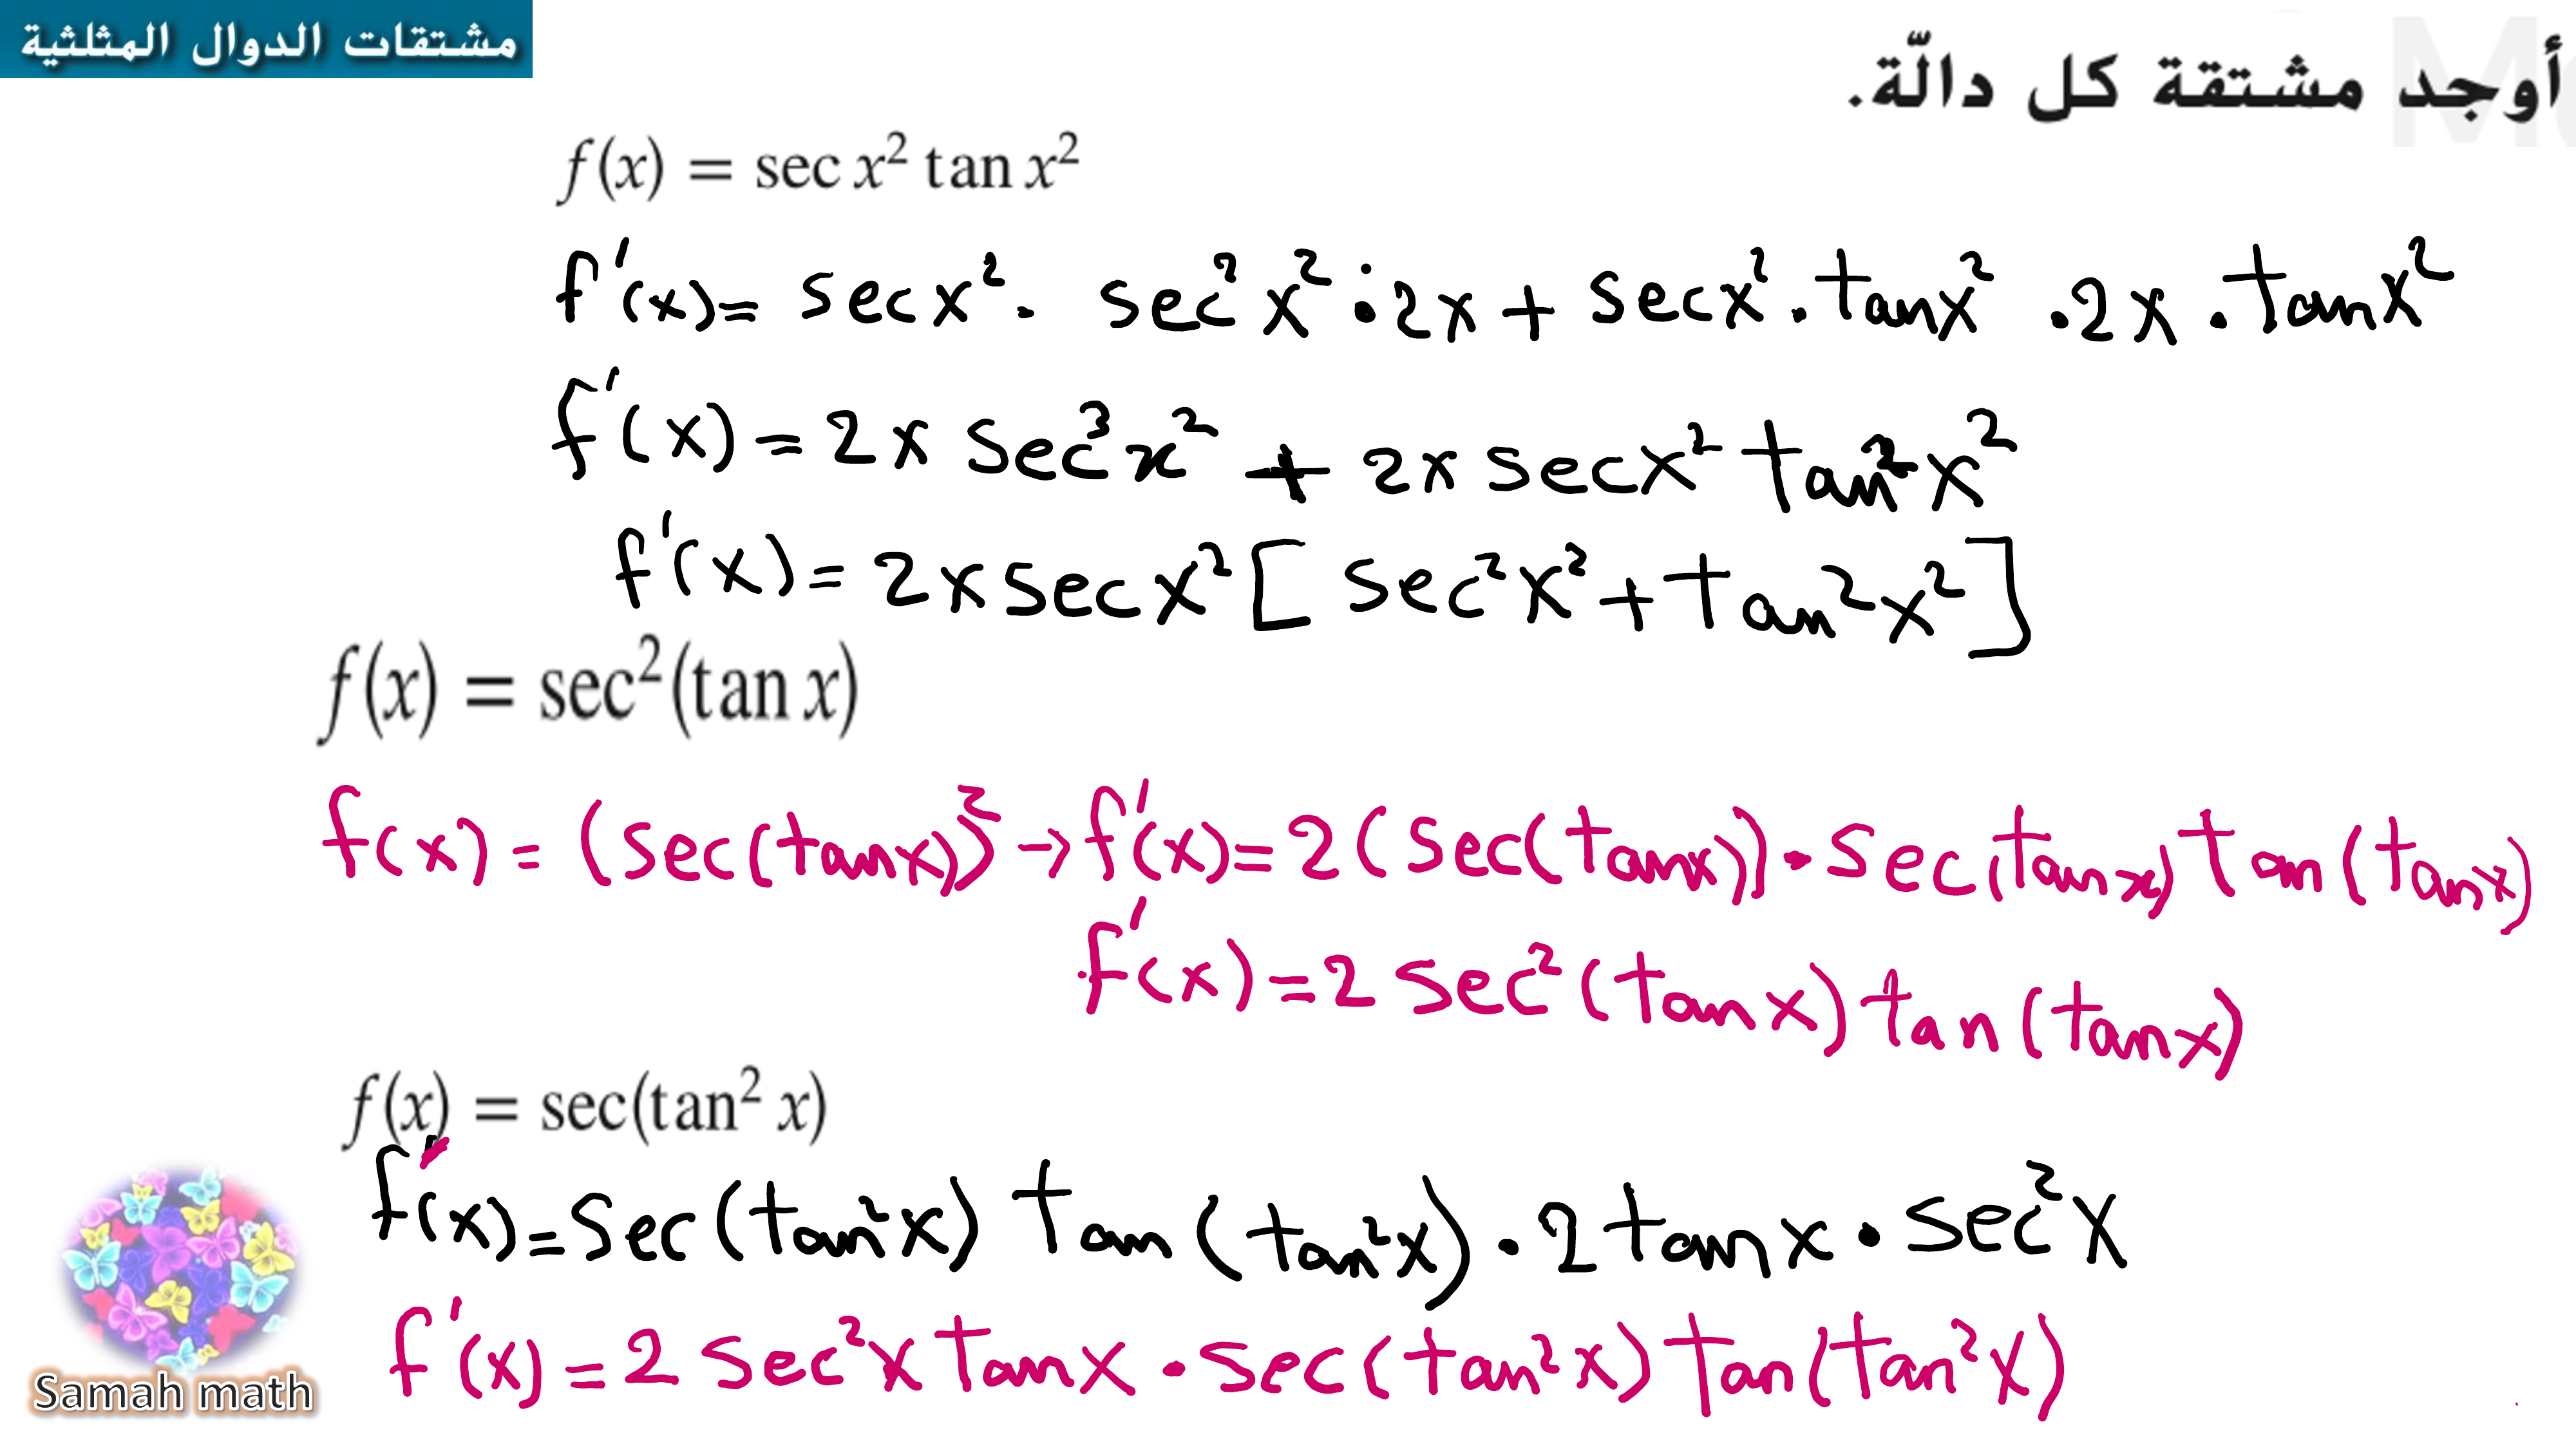 مشتقات الدوال المثلثية
أوجد مشتقة كل دالّة.
f(x) = sec x² tan x²
f'(x) = sec x² · sec² x² · 2x + sec x² · tan x² · 2x · tan x²
f'(x) = 2x sec³ x² + 2x sec x² tan² x²
f'(x) = 2x sec x² [ sec² x² + tan² x² ]
f(x) = sec²(tan x)
f(x) = (sec(tan x))² → f'(x) = 2(sec(tan x)) · sec(tan x) tan(tan x)
f'(x) = 2 sec² (tan x) tan (tan x)
f(x) = sec(tan² x)
f'(x) = sec (tan² x) tan (tan² x) · 2 tan x · sec² x
f'(x) = 2 sec² x tan x · sec(tan² x) tan(tan² x)
Samah math